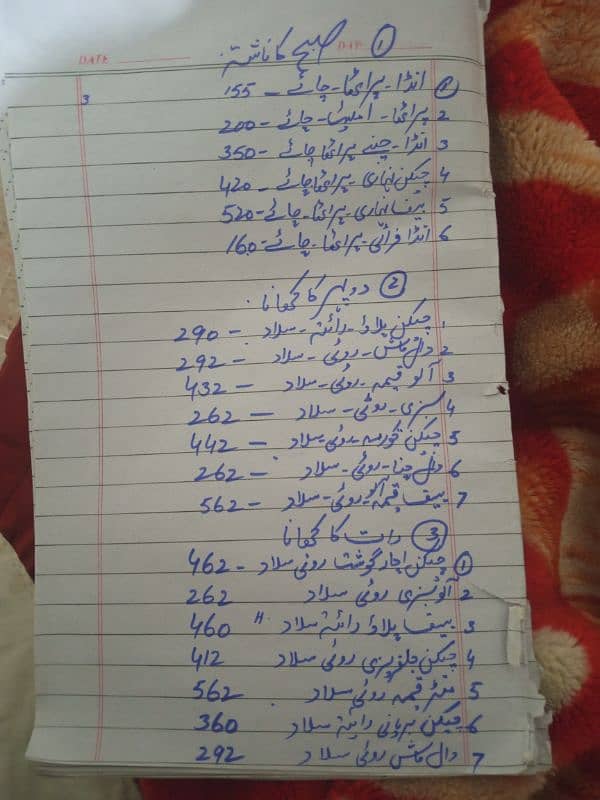 DATE DAY ① صبح کا ناشتہ
3
① انڈا - پراٹھا - چائے - 155
2 پراٹھا - آملیٹ - چائے - 200
3 انڈا - چنے پراٹھا چائے - 350
4 چکن نہاری - پراٹھا چائے - 420
5 بیف نہاری - پراٹھا - چائے - 520
6 انڈا فرائی - پراٹھا - چائے - 160
② دوپہر کا کھانا
1 چکن پلاؤ - رائتہ - سلاد - 290
2 دال ماش - روٹی - سلاد - 292
3 آلو قیمہ - روٹی - سلاد - 432
4 سبزی - روٹی - سلاد - 262
5 چکن قورمہ - روٹی - سلاد - 442
6 دال چنا - روٹی - سلاد - 262
7 بیف قیمہ آلو - روٹی - سلاد - 562
③ رات کا کھانا
① چکن اچار گوشت روٹی سلاد - 462
2 آلو سبزی روٹی سلاد 262
3 بیف پلاؤ رائتہ سلاد " 460
4 چکن جلفریزی روٹی سلاد 412
5 مٹر قیمہ روٹی سلاد 562
6 چکن بریانی رائتہ سلاد 360
7 دال ماش روٹی سلاد 292